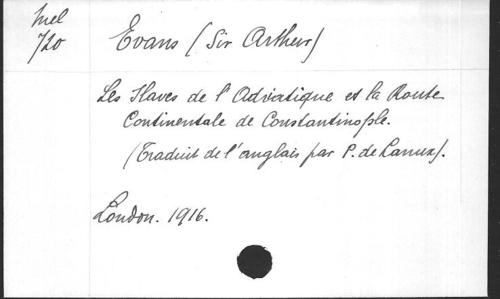 Mel
720
Evans (Sir Arthur)
Les Slaves de l'Adriatique et la Route
Continentale de Constantinople.
(Traduit de l'anglais par P. de Lanux).
London. 1916.